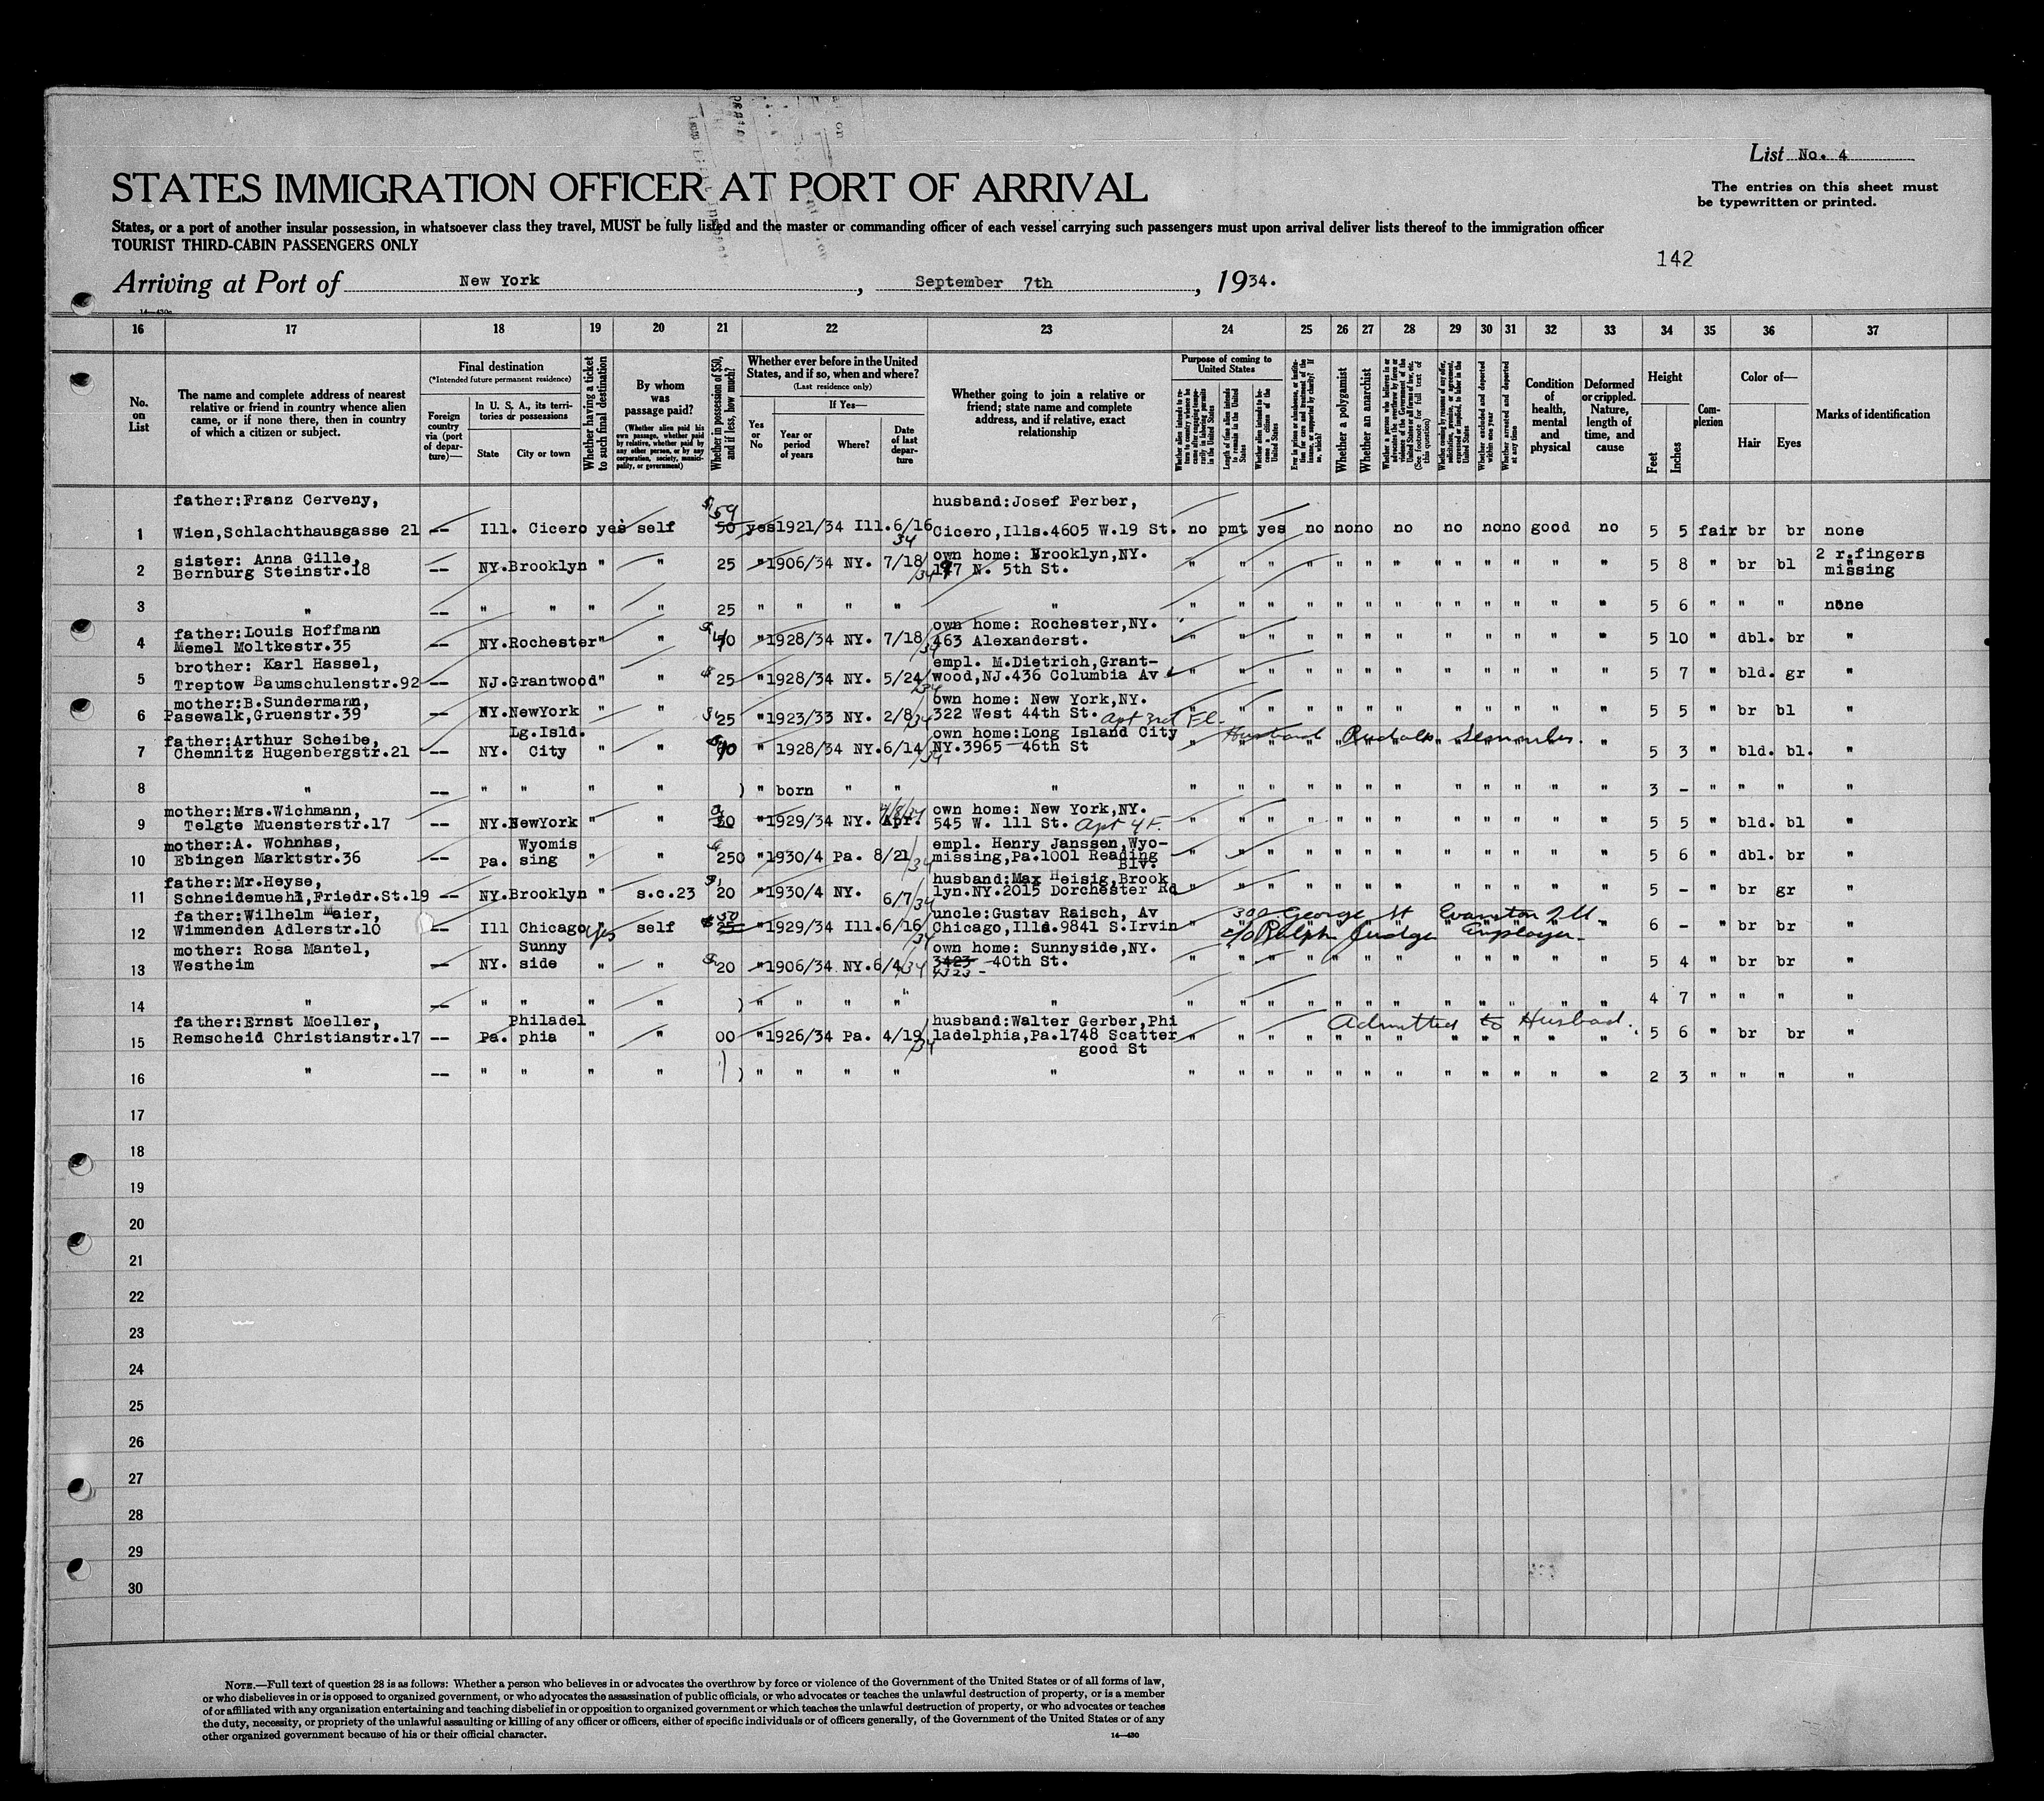 List No. 4
STATES IMMIGRATION OFFICER AT PORT OF ARRIVAL
The entries on this sheet must
be typewritten or printed.
States, or a port of another insular possession, in whatsoever class they travel, MUST be fully listed and the master or commanding officer of each vessel carrying such passengers must upon arrival deliver lists thereof to the immigration officer
TOURIST THIRD-CABIN PASSENGERS ONLY
142
Arriving at Port of New York, September 7th, 1934.
16 17 18 19 20 21 22 23 24 25 26 27 28 29 30 31 32 33 34 35 36 37
No. on List
The name and complete address of nearest relative or friend in country whence alien came, or if none there, then in country of which a citizen or subject.
Final destination
(*Intended future permanent residence)
Foreign country via (port of departure)—
In U. S. A., its territories or possessions
State City or town
Whether having a ticket to such final destination
By whom was passage paid?
(Whether alien paid his own passage, whether paid by relative, whether paid by any other person, or by any corporation, society, municipality, or government)
Whether in possession of $50, and if less, how much?
Whether ever before in the United States, and if so, when and where?
(Last residence only)
Yes or No
If Yes—
Year or period of years
Where?
Date of last departure
Whether going to join a relative or friend; state name and complete address, and if relative, exact relationship
Purpose of coming to United States
Length of time alien intends to remain in the United States
Whether alien intends to become a citizen of the United States
Whether a polygamist
Whether an anarchist
Whether excluded and deported within one year
Whether arrested and deported at any time
Condition of health, mental and physical
Deformed or crippled. Nature, length of time, and cause
Height
Feet Inches
Complexion
Color of—
Hair Eyes
Marks of identification
father:Franz Cerveny, husband:Josef Ferber,
1 Wien,Schlachthausgasse 21 -- Ill. Cicero yes self 50 yes 1921/34 Ill. 6/16 34 Cicero,Ills.4605 W.19 St. no pmt yes no no no no no no no good no 5 5 fair br br none
sister: Anna Gille, own home: Brooklyn,NY. 2 r.fingers
2 Bernburg Steinstr.18 -- NY. Brooklyn " " 25 " 1906/34 NY. 7/18/34 N. 5th St. " " " " " " " " " " " " 5 8 " br bl missing
3 " -- " " " " 25 " " " " " " " " " " " " " " " " " 5 6 " " " none
father:Louis Hoffmann own home: Rochester,NY.
4 Memel Moltkestr.35 -- NY. Rochester " " " 1928/34 NY. 7/18/34 463 Alexanderst. " " " " " " " " " " " " 5 10 " dbl. br "
brother: Karl Hassel, empl. M.Dietrich,Grant-
5 Treptow Baumschulenstr.92 -- NJ. Grantwood " " 25 " 1928/34 NY. 5/24/34 wood,NJ.436 Columbia Av " " " " " " " " " " " " 5 7 " bld. gr "
mother:B.Sundermann, own home: New York,NY.
6 Pasewalk,Gruenstr.39 -- NY. NewYork " " 25 " 1923/33 NY. 2/8/34 322 West 44th St. Apt 3rd Fl. " " " " " " " " " " " " 5 5 " br bl "
father:Arthur Scheibe, Lg.Isld. own home:Long Island City
7 Chemnitz Hugenbergstr.21 -- NY. City " " " 1928/34 NY. 6/14/34 NY.3965 46th St Husband Rudolph 5 3 " bld. bl. "
8 " -- " " " " ) " born " " " " " " " " " " " " " " " 3 - " " " "
mother:Mrs.Wichmann, own home: New York,NY.
9 Telgte Muensterstr.17 -- NY. NewYork " " " 1929/34 NY. Apr. 545 W. 111 St. Apt 4 F. " " " " " " " " " " " " 5 5 " bld. bl "
mother:A. Wohnhas, Wyomis empl. Henry Janssen,Wyo-
10 Ebingen Marktstr.36 -- Pa. sing " " 250 " 1930/4 Pa. 8/21/34 missing,Pa.1001 Reading Blv. " " " " " " " " " " " " 5 6 " dbl. br "
father:Mr.Heyse, husband:Max Heisig,Brook
11 Schneidemuehl,Friedr.St.19 -- NY. Brooklyn " s.c.23 20 " 1930/4 NY. 6/7/34 lyn.NY.2015 Dorchester Rd " " " " " " " " " " " " 5 - " br gr "
father:Wilhelm Maier, uncle:Gustav Raisch, Av George St Evanston Ill
12 Wimmenden Adlerstr.10 -- Ill Chicago yes self 50 25 " 1929/34 Ill. 6/16/34 Chicago,Ills.9841 S.Irvin c/o Ralph Judge Employer 6 - " br br "
mother: Rosa Mantel, Sunny own home: Sunnyside,NY.
13 Westheim -- NY. side " " 20 " 1906/34 NY. 6/4/34 3423 -40th St. 4323 - " " " " " " " " " " " " 5 4 " br br "
14 " -- " " " " ) " " " " " " " " " " " " " " " " " 4 7 " " " "
father:Ernst Moeller, Philadel husband:Walter Gerber,Phi Admitted to Husband.
15 Remscheid Christianstr.17 -- Pa. phia " " 00 " 1926/34 Pa. 4/19/34 ladelphia,Pa.1748 Scatter good St " " " " " " " " " " " " 5 6 " br br "
16 " -- " " " " ) " " " " " " " " " " " " " " " " " 2 3 " " " "
17
18
19
20
21
22
23
24
25
26
27
28
29
30
NOTE.—Full text of question 28 is as follows: Whether a person who believes in or advocates the overthrow by force or violence of the Government of the United States or of all forms of law,
or who disbelieves in or is opposed to organized government, or who advocates the assassination of public officials, or who advocates or teaches the unlawful destruction of property, or is a member
of or affiliated with any organization entertaining and teaching disbelief in or opposition to organized government or which teaches the unlawful destruction of property, or who advocates or teaches
the duty, necessity, or propriety of the unlawful assaulting or killing of any officer or officers, either of specific individuals or of officers generally, of the Government of the United States or of any
other organized government because of his or their official character.
14—430